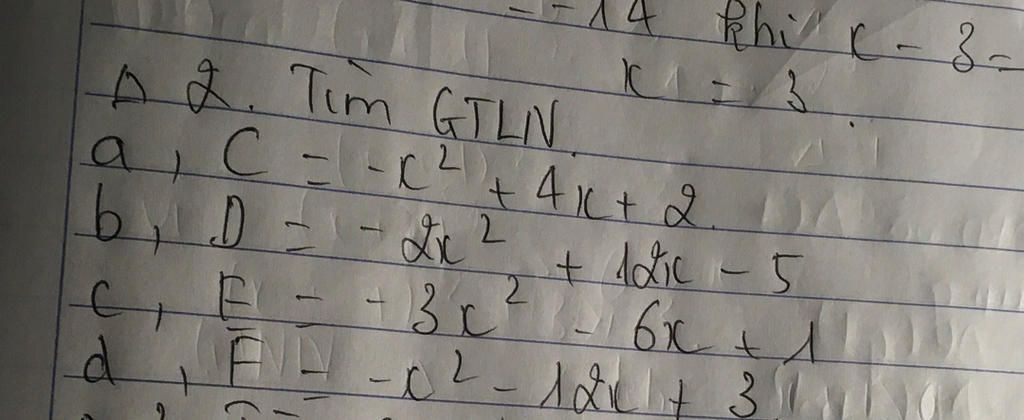 = -14 khi x - 3 =
x = 3.
Δ 2. Tìm GTLN.
a, C = -x² + 4x + 2.
b, D = - 2x² + 12x - 5
c, E = - 3x² - 6x + 1
d, F = -x² - 12x + 3